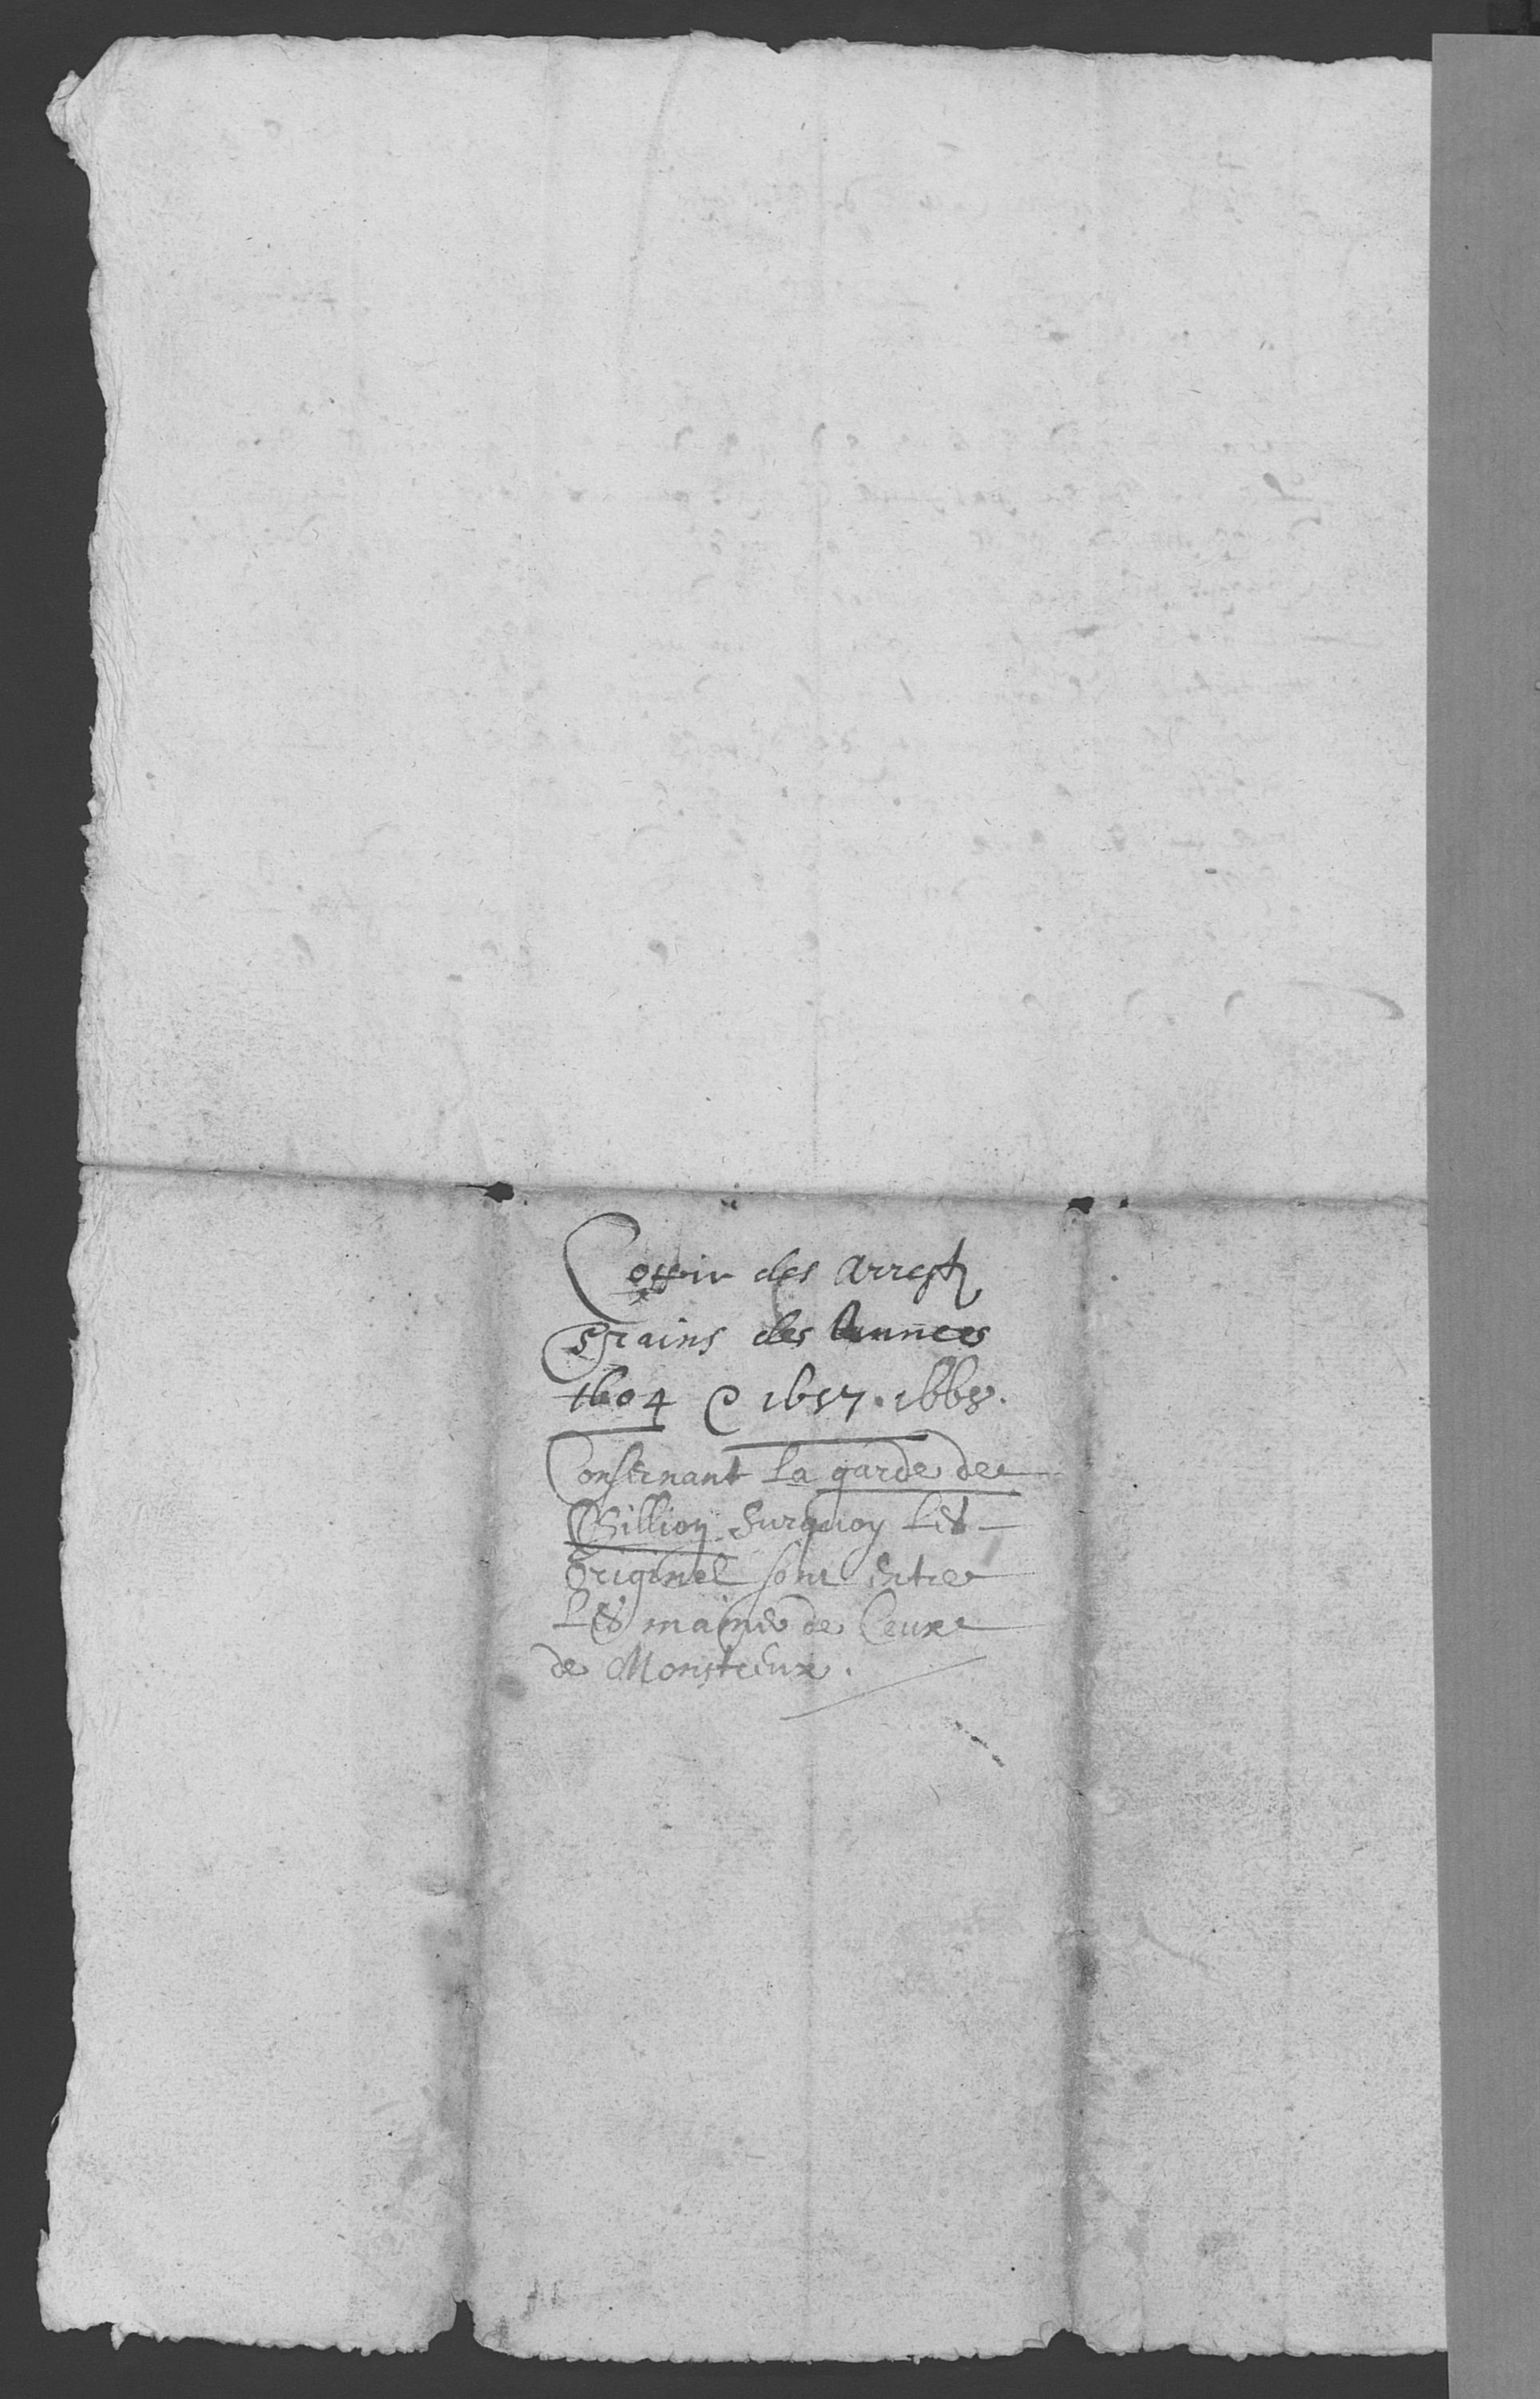 Coppie des Arrest
Sprains des Annees
1604 e 1657. 1668.
Consernant La garde de
Billion Surquoy Les
Originel sont Entre
Les mains de Ceux
de Monstreux.